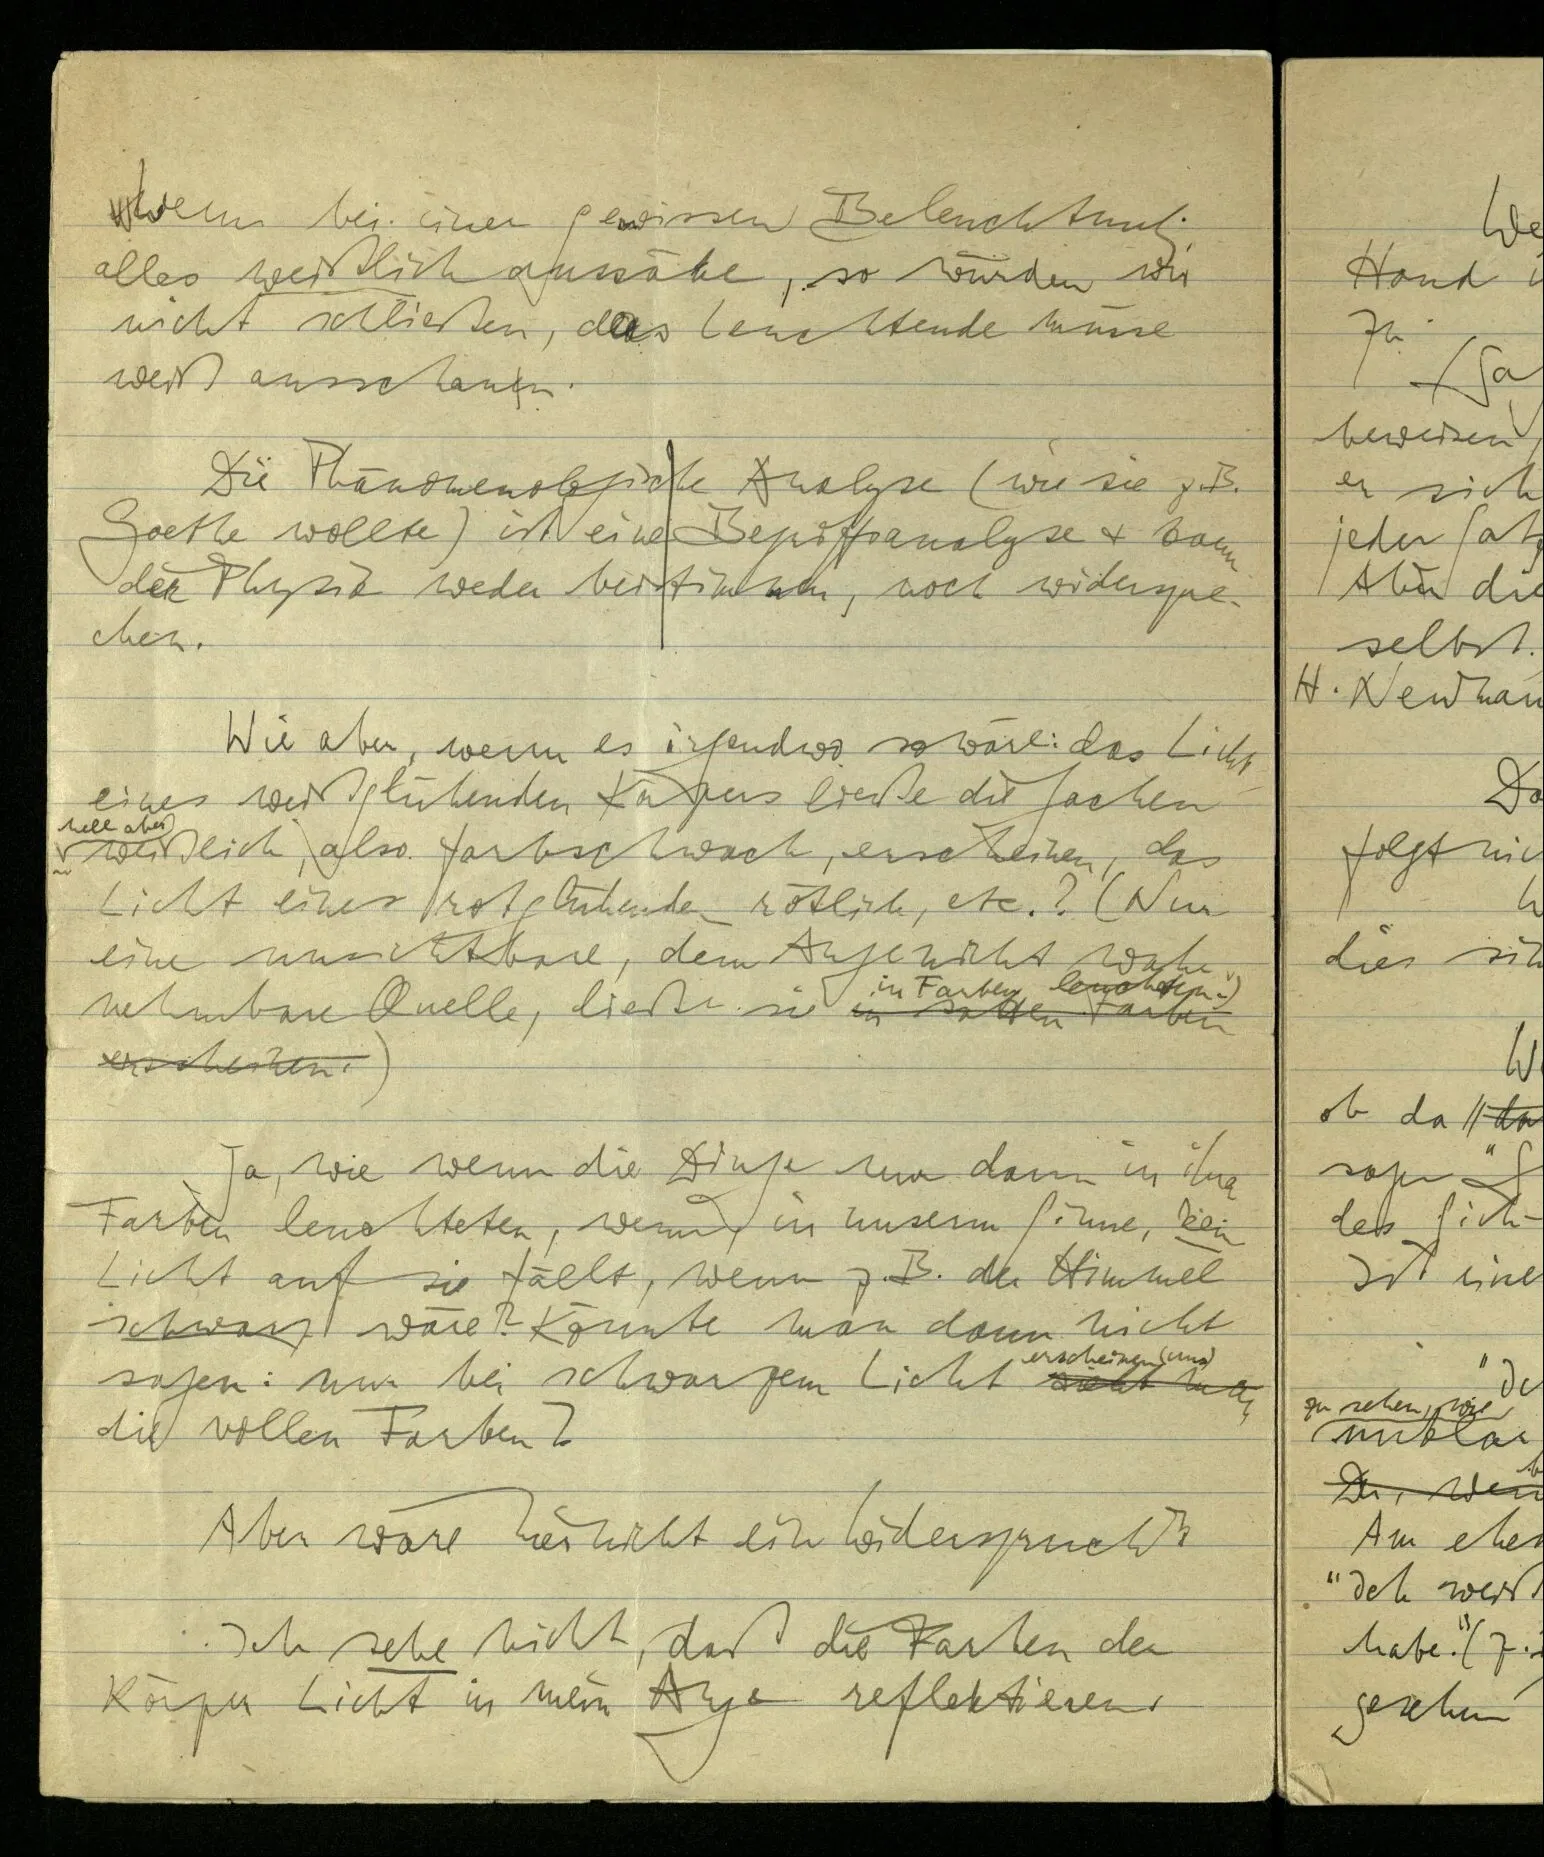 Wenn bei einer gewissen Beleuchtung
alles weißlich aussähe, so würden wir
nicht schließen, das Leuchtende müsse
weiß ausschauen.
Die Phänomenologische Analyse (wie sie z.B.
Goethe wollte) ist eine Begriffsanalyse & kann
der Physik weder beistimmen, noch widerspre-
chen.
Wie aber, wenn es irgendwo so wäre: das Licht
eines weißglühenden Körpers ließe die Sachen
hell aber
weißlich, also farbschwach, erscheinen, das
Licht eines rotglühenden rötlich, etc.? (Nur
eine unsichtbare, dem Auge nicht wahr-
in Farben leuchten.)
nehmbare Quelle, ließe sie in satten Farben
erscheinen.)
Ja, wie wenn die Dinge nur dann in ihren
Farben leuchteten, wenn, in unserm Sinne, kein
Licht auf sie fällt, wenn z.B. der Himmel
schwarz wäre? Könnte man dann nicht
erscheinen (uns)
sagen: nur bei schwarzem Licht sieht man
die vollen Farben?
Aber wäre hier nicht ein Widerspruch?
Ich sehe nicht, daß die Farben der
Körper Licht in mein Auge reflektieren.
We
Hand
zu
(Sa
beweisen,
er sich
jeder Satz
Aber die
selbst.
H. Newman
Da
folgt nic
dies sin
ob da
sagen
des Sich-
Ist eine
zu sehen, wie
unklar
Am ehe
"Ich weiß
habe." (z.
gesehen